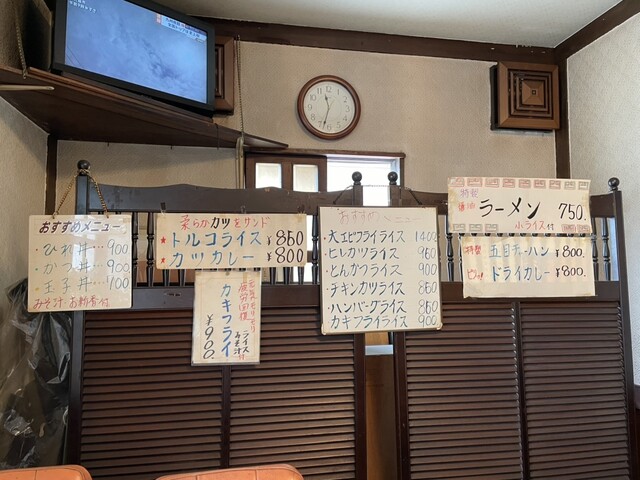 おすすめメニュー
ひれ丼…900
かつ丼…900
玉子丼…700
みそ汁、お新香付
柔らかカツをサンド
★トルコライス ¥850
★カツカレー ¥800
疲労回復
カキフライ
ライス
みそ汁付
¥900
おすすめメニュー
大エビフライライス 1400
ヒレカツライス 960
とんかつライス 900
チキンカツライス 860
ハンバーグライス 860
カキフライライス 900
特製
醤油
ラーメン 750.
小ライス付
特製 五目チャーハン ¥800.
ピリッ! ドライカレー ¥800.
12